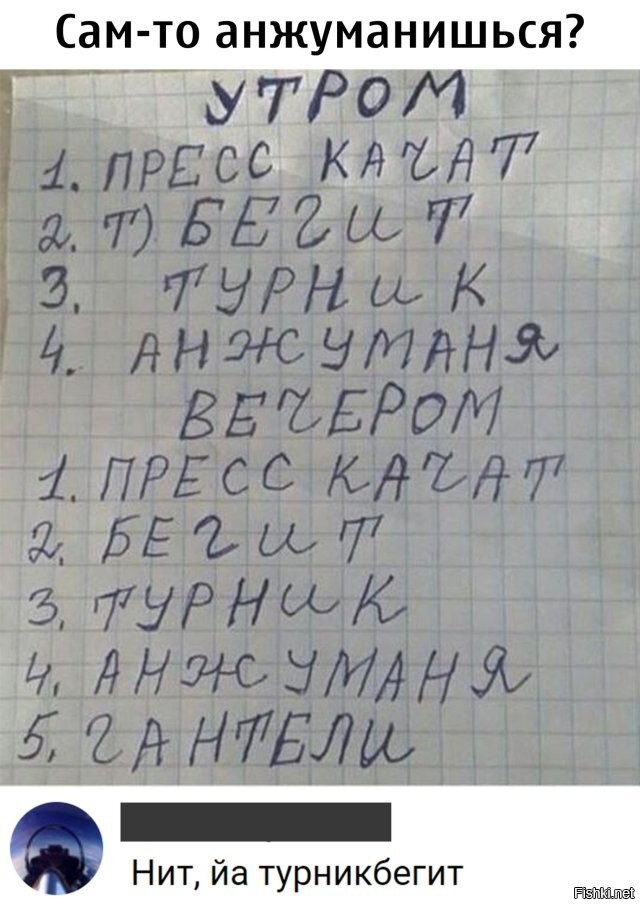 Сам-то анжуманишься?
УТРОМ
1. ПРЕСС КАЧАТ
2. Т) БЕГИТ
3. ТУРНИК
4. АНЖУМАНЯ
ВЕЧЕРОМ
1. ПРЕСС КАЧАТ
2. БЕГИТ
3. ТУРНИК
4. АНЖУМАНЯ
5. ГАНТЕЛИ
Нит, йа турникбегит
Fishki.net